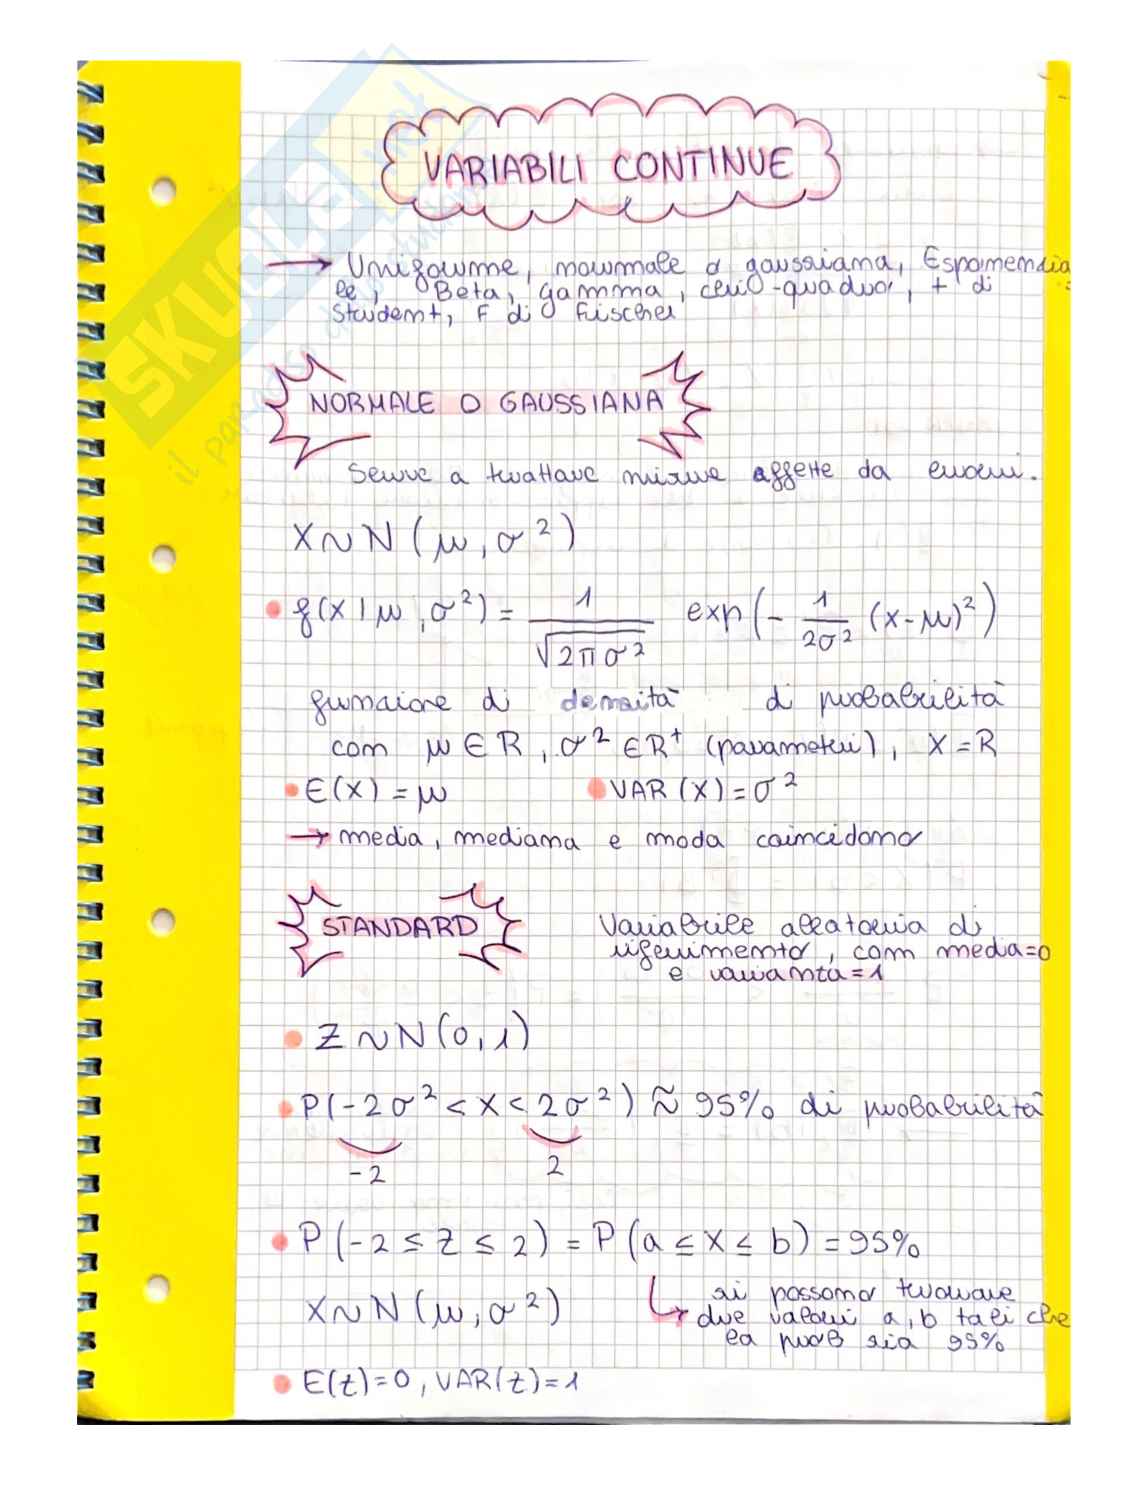 VARIABILI CONTINUE
→ Uniforme, normale o gaussiana, Esponenzia
le, Beta, gamma, chi-quadro, t di
Student, F di Fischer
NORMALE O GAUSSIANA
Serve a trattare misure affette da errori.
X ~ N (μ, σ²)
• f(x | μ, σ²) = 1 / √2πσ² exp(- 1/2σ² (x-μ)²)
funzione di densità di probabilità
con μ ∈ R, σ² ∈ R⁺ (parametri), X = R
• E(X) = μ • VAR (X) = σ²
→ media, mediana e moda coincidono
STANDARD
Variabile aleatoria di
riferimento, con media=0
e varianza=1
• Z ~ N(0,1)
• P(-2σ² < x < 2σ²) ≈ 95% di probabilità
-2 2
• P (-2 ≤ Z ≤ 2) = P (a ≤ x ≤ b) = 95%
X ~ N (μ, σ²)
↳ si possono trovare
due valori a, b tali che
la prob sia 95%
• E(z)=0, VAR(z)=1
SKUOLA.net
il paradiso dello studente